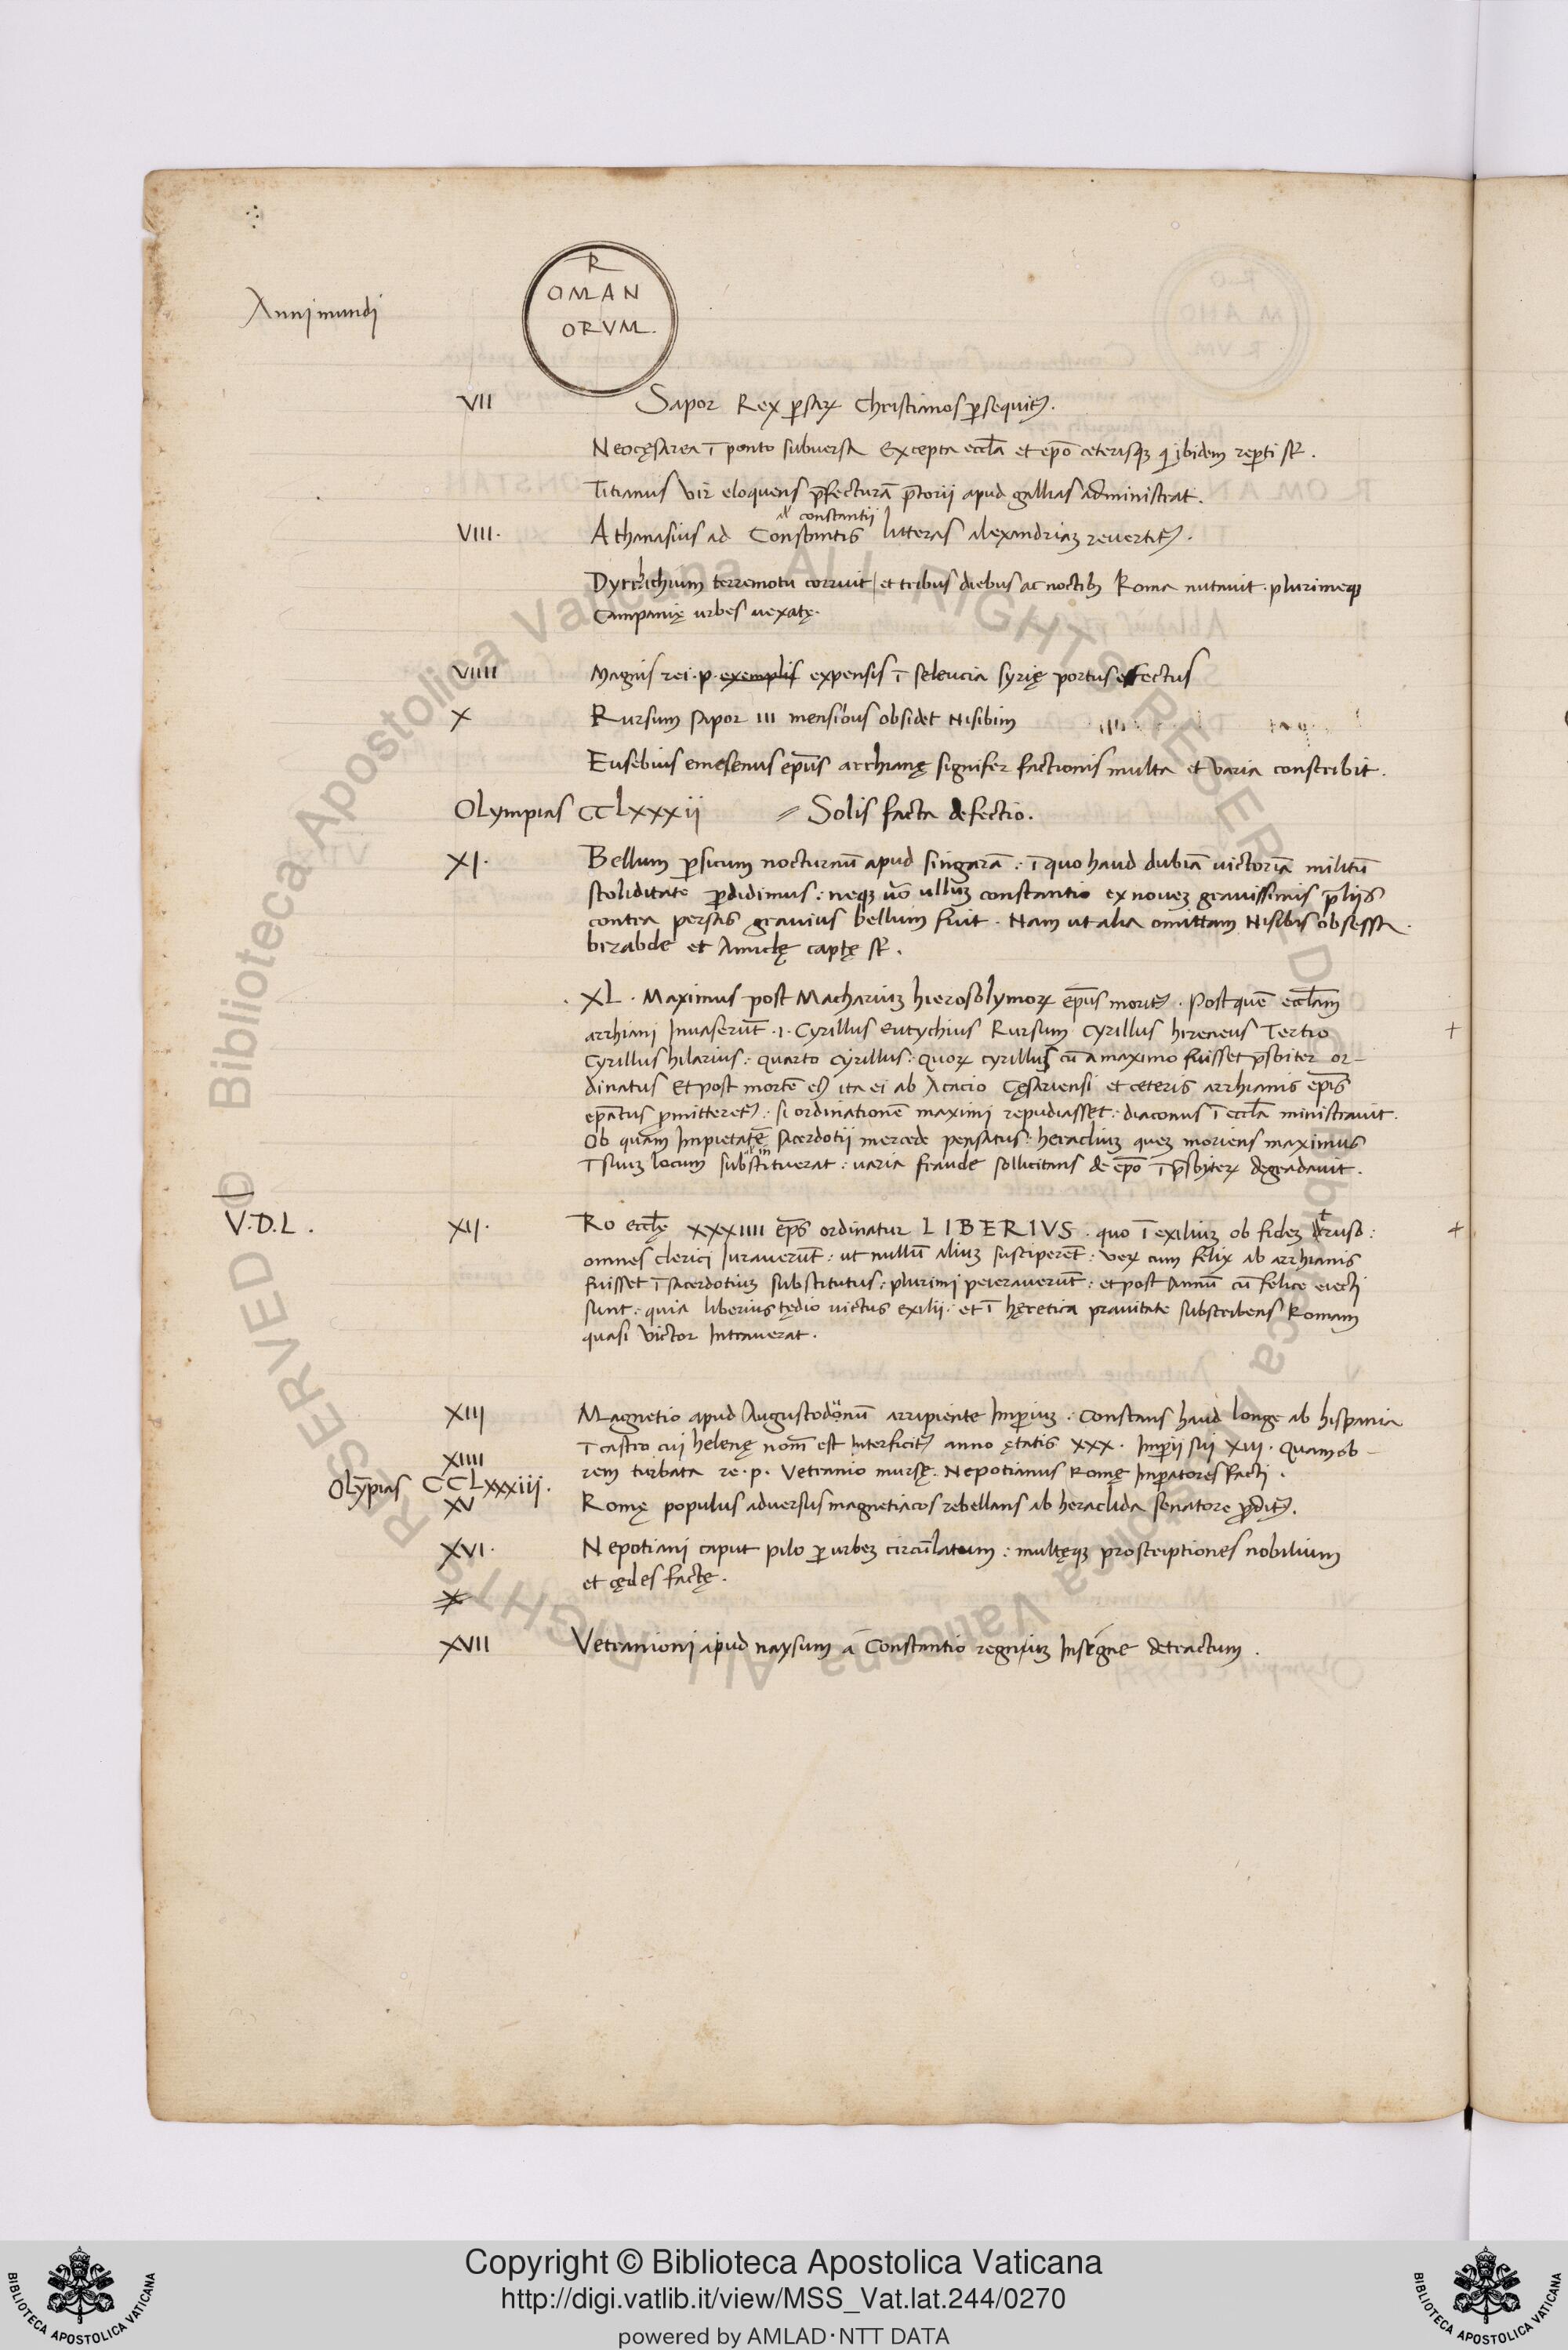 R
OMAN
ORVM.
Anni mundi
VII Sapor Rex ꝑsaꝝ Christianos ꝑsequit᷑.
Neocęsarea ī ponto subuersa Excepta eccl̄a et ep̄o ceterisqꝫ q ibidem reꝑti st̄.
Titianus vir eloquens p̄fecturā p̄torii apud gallias administrat.
al constantii
VIII. Athanasius ad Constantis litteras alexandriaꝫ reuertit᷑.
h
Dyrrichium terremotu corruit et tribus diebus ac noctibꝫ Roma nutauit. plurimeqꝫ
Campanię urbes uexatę.
VIIII Magnis rei. p. exemplis expensis ī seleucia syrię portus effectus
X Rursum sapor III mensibus obsidet Nisibim
Eusebius emesenus ep̄us arrhianę signifer factionis multa et varia conscribit.
Olympias CCLxxxii Solis facta defectio.
XI. Bellum ꝑsicum nocturnū apud singarā: ī quo haud dubiā uictoriā militū
stoliditate ꝑdidimus: neqꝫ ūo ullum constantio ex noueꝫ grauissimis p̄liis
contra persas grauius bellum fuit. Nam ut alia omittam Nisibis obsessa.
bizabde et Amidę captę st̄.
. XL. Maximus post Machariuꝫ hierosolymoꝝ ep̄us morit᷑. Post quē eccl̄am
arrhiani Inuaserūt. I. Cyrillus Eutychius Rursum Cyrillus hireneus Tertio +
Cyrillus hilarius: quarto cyrillus: quoꝝ cyrillus cū a maximo fuisset p̄sbiter or-
dinatus Et post mortē eiꝰ ita ei ab Acacio Cęsariensi et ceteris arrhianis ep̄is
ep̄atus ꝑmitteret᷑: si ordinationē maximi repudiasset: diaconus ī eccl̄a ministrauit.
Ob quam Impietatē sacerdotii mercede pensatus: heracliuꝫ queꝫ moriens maximus
ī suuꝫ locum substituerat: varia fraude sollicitans de ep̄o ī p̄sbyteꝝ degradauit.
V.D.L. XII. Ro eccl̄ę XXXIIII ep̄s ordinatur LIBERIVS. quo ī exiliuꝫ ob fideꝫ truso: +
omnes clerici Iurauerūt: ut nullū aliuꝫ susciperēt: Veꝝ cum felix ab arrhianis
fuisset ī sacerdotiuꝫ substitutus: plurimi peierauerūt: et post Annū cū felice eiecti
sunt: quia liberius tędio uictus exilii: et ī hęretica prauitate subscribens Romam
quasi victor Intrauerat.
XIII Magnetio apud Augustodonū arripiente Imꝑiuꝫ. Constans haud longe ab hispania
ī castro cui helenę nom̄ est Interficit᷑ anno ętatis XXX. Imꝑii sui XIII. quamob-
XIIII rem turbata re. p. Vetranio mursę. Nepotianus Romę Imꝑatores facti.
Olȳpias CCLxxxiii.
XV Romę populus aduersus magnetiacos rebellans ab heraclida senatore ꝓdit᷑.
XVI. Nepotiani caput pilo ꝑ urbeꝫ circūlatum: multęqꝫ proscriptiones nobilium
et cędes factę.
X
XVII Vetranioni apud naysum a Constantio regniuꝫ Insigne detractum.
Copyright © Biblioteca Apostolica Vaticana
http://digi.vatlib.it/view/MSS_Vat.lat.244/0270
powered by AMLAD·NTT DATA